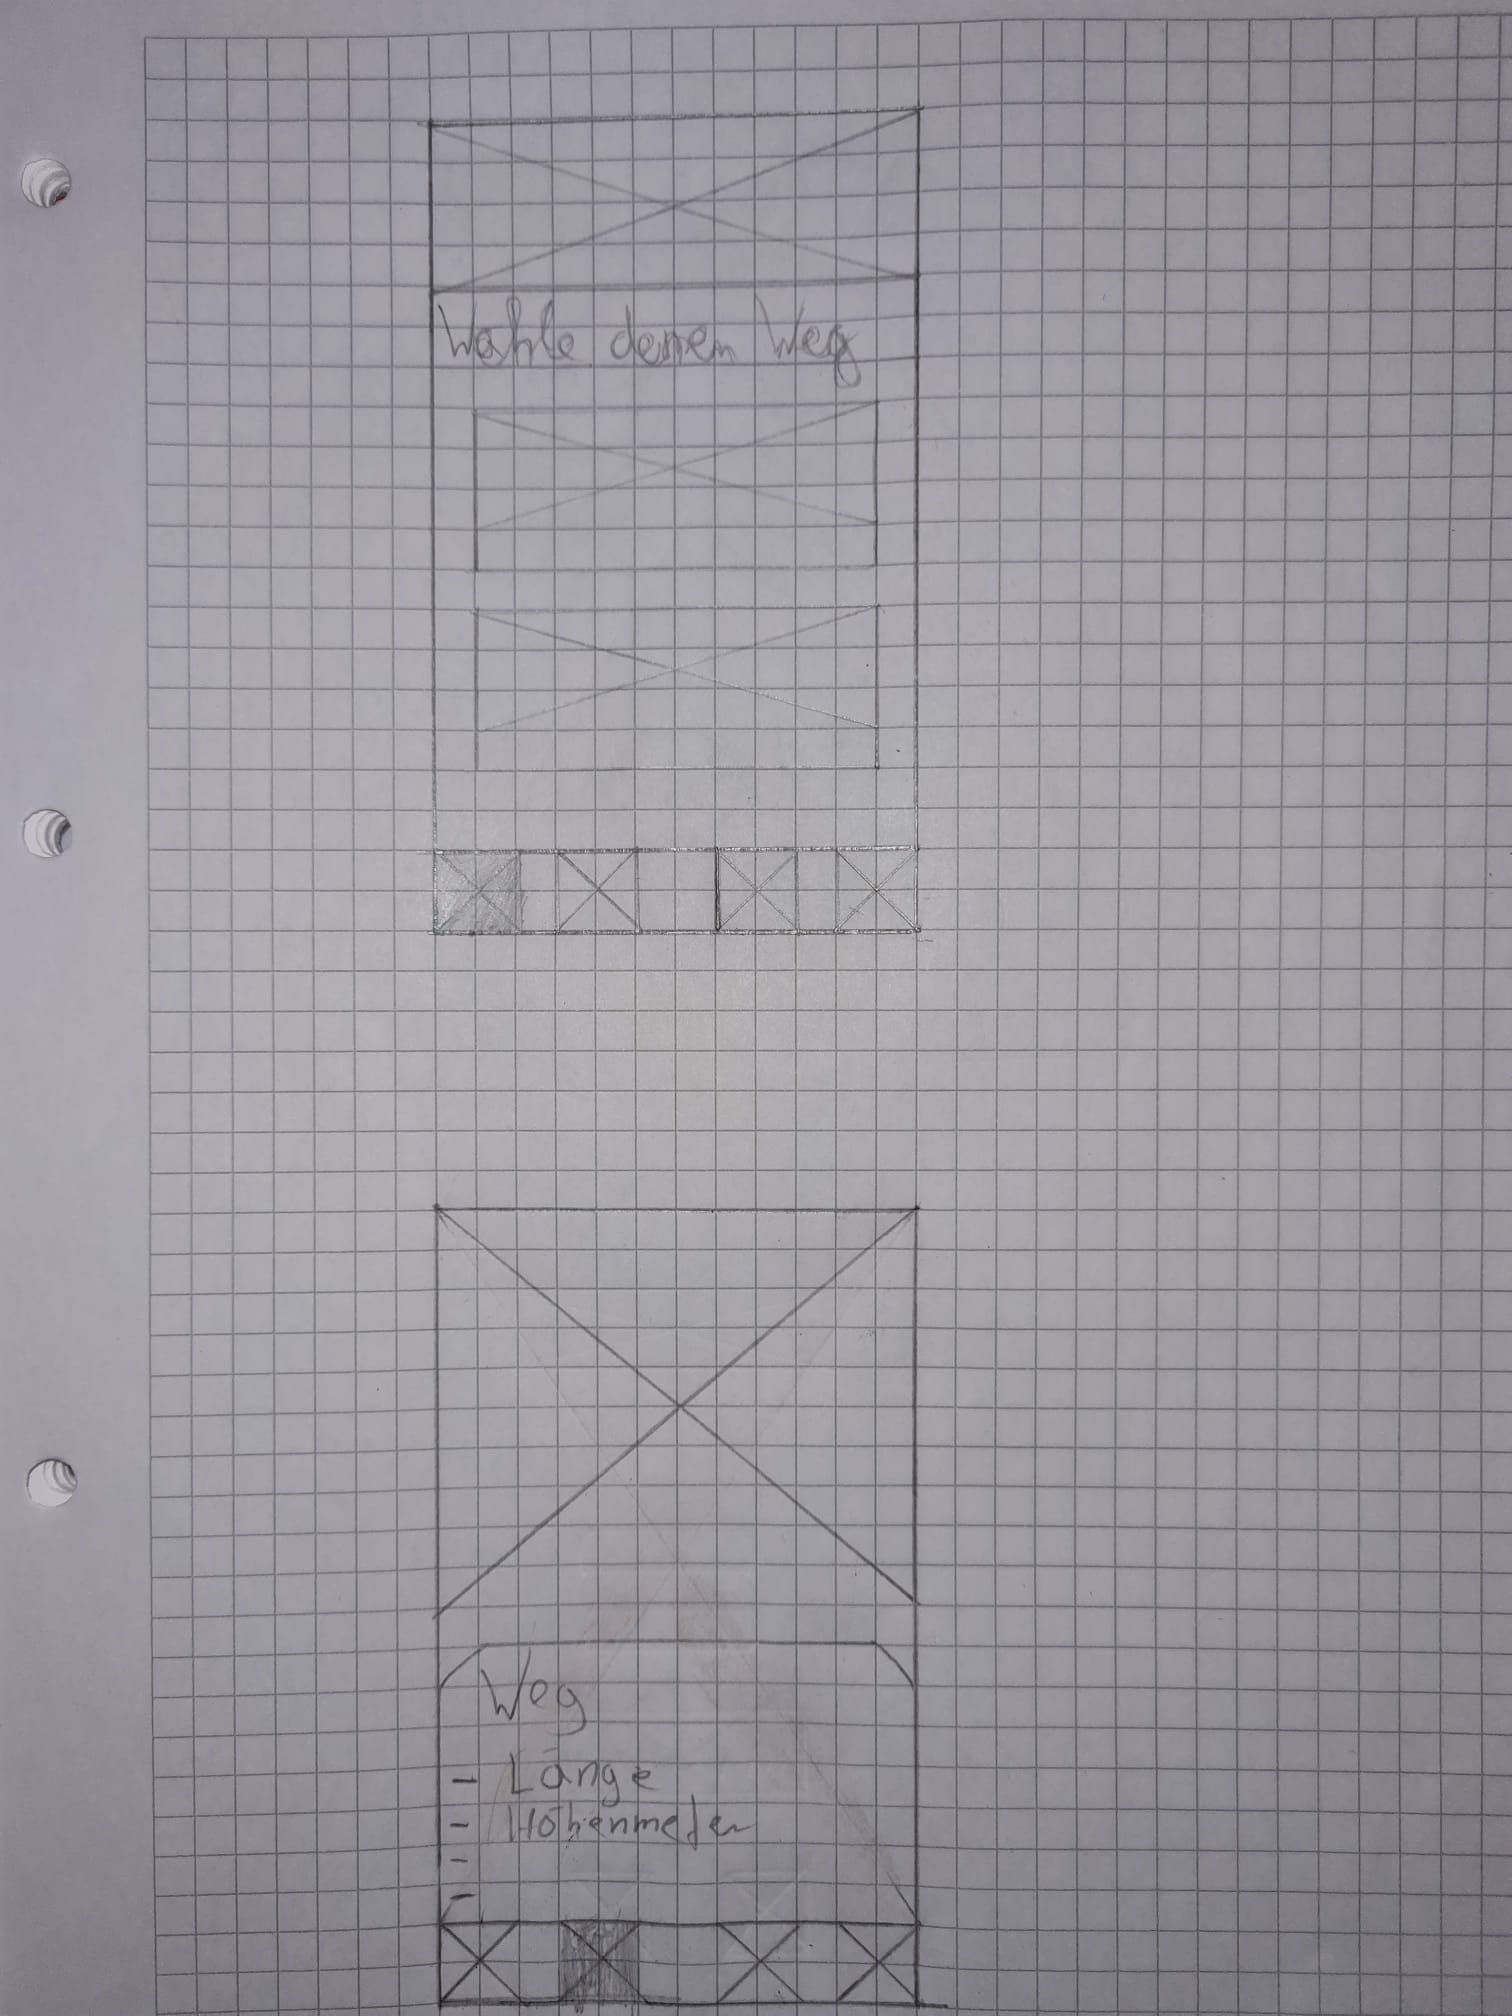 Wähle deinen Weg
Weg
- Länge
- Höhenmeter
-
-